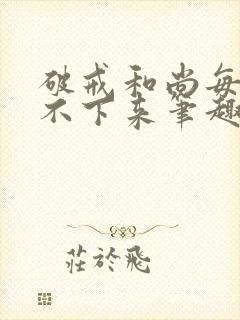 破戒和尚每
不下来笔趣
莊於飛